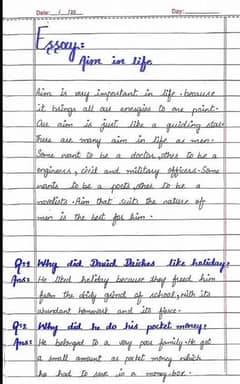 Date: __/__/20__ Day:
Essay:
Aim in life
Aim is very important in life. because
it brings all our energies to one point.
Our aim is just like a guiding star.
There are many aim in life as men.
Some want to be a doctor, other to be a
engineers, civil and military officers. Some
wants to be a poets, other to be a
novelists. Aim that suits the nature of
men is the best for him.
Q:1 Why did David Daiches like holiday:
Ans: He liked holiday because they freed him
from the daily grind of school, with its
abundant homework and its
Q:2 Why did he do his pocket money:
Ans: He belonged to a very poor family. He got
a small amount as pocket money which
he had to save in a money-box.